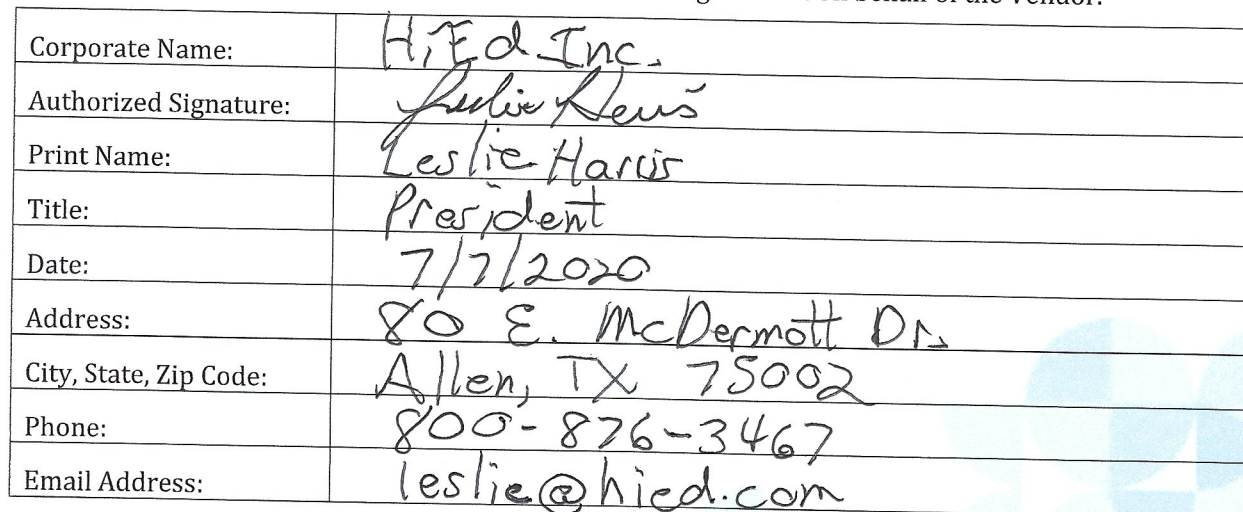 on behalf of the Vendor.
Corporate Name: HiEd Inc.
Authorized Signature: Leslie Harris
Print Name: Leslie Harris
Title: President
Date: 7/7/2020
Address: 80 E. McDermott Dr.
City, State, Zip Code: Allen, TX 75002
Phone: 800-876-3467
Email Address: leslie@hied.com